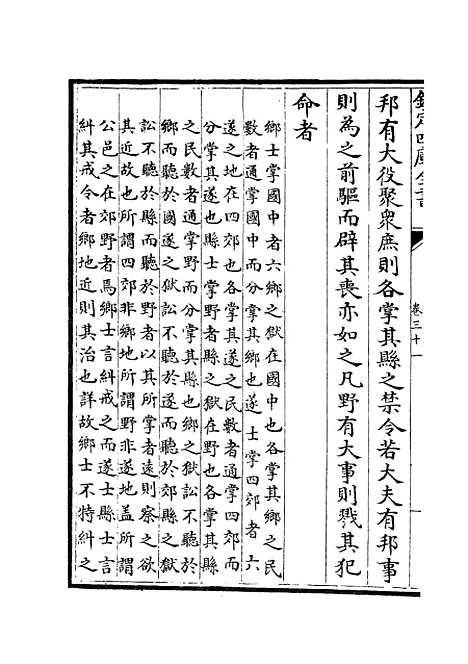 欽定四庫全書
卷三十一
邦有大役聚衆庶則各掌其縣之禁令若大夫有邦事
則為之前驅而辟其喪亦如之凡野有大事則戮其犯
命者
鄉士掌國中者六鄉之獄在國中也各掌其鄉之民
數者通掌國中而分掌其鄉也遂士掌四郊者六
遂之地在四郊也各掌其遂之民數者通掌四郊而
分掌其遂也縣士掌野者縣之獄在野也各掌其縣
之民數者通掌野而分掌其縣也鄉之獄訟不聽於
鄉而聽於國遂之獄訟不聽於遂而聽於郊縣之獄
訟不聽於縣而聽於野者以其所掌者遠則察之欲
其近故也所謂四郊非鄉地所謂野非遂地盖所謂
公邑之在郊野者焉鄉士言糾戒之而遂士縣士言
糾其戒令者鄉地近則其治也詳故鄉士不特糾之